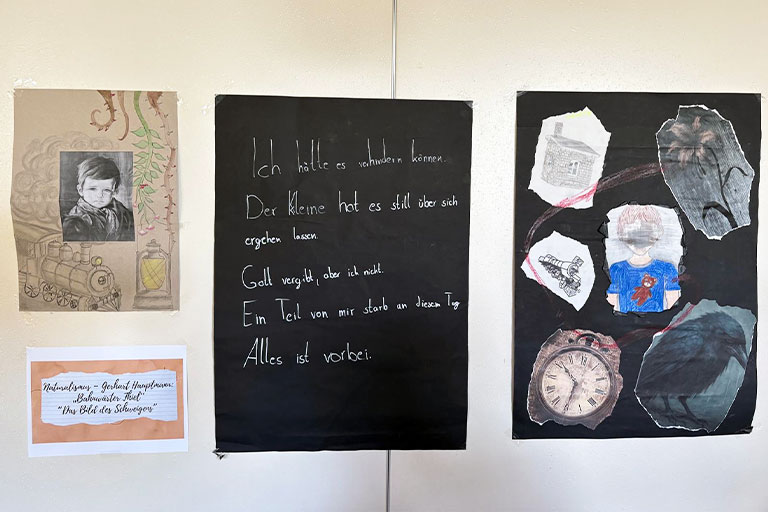 Naturalismus – Gerhart Hauptmann:
„Bahnwärter Thiel"
"Das Bild des Schweigens"
Ich hätte es verhindern können.
Der Kleine hat es still über sich
ergehen lassen.
Gott vergibt, aber ich nicht.
Ein Teil von mir starb an diesem Tag
Alles ist vorbei.